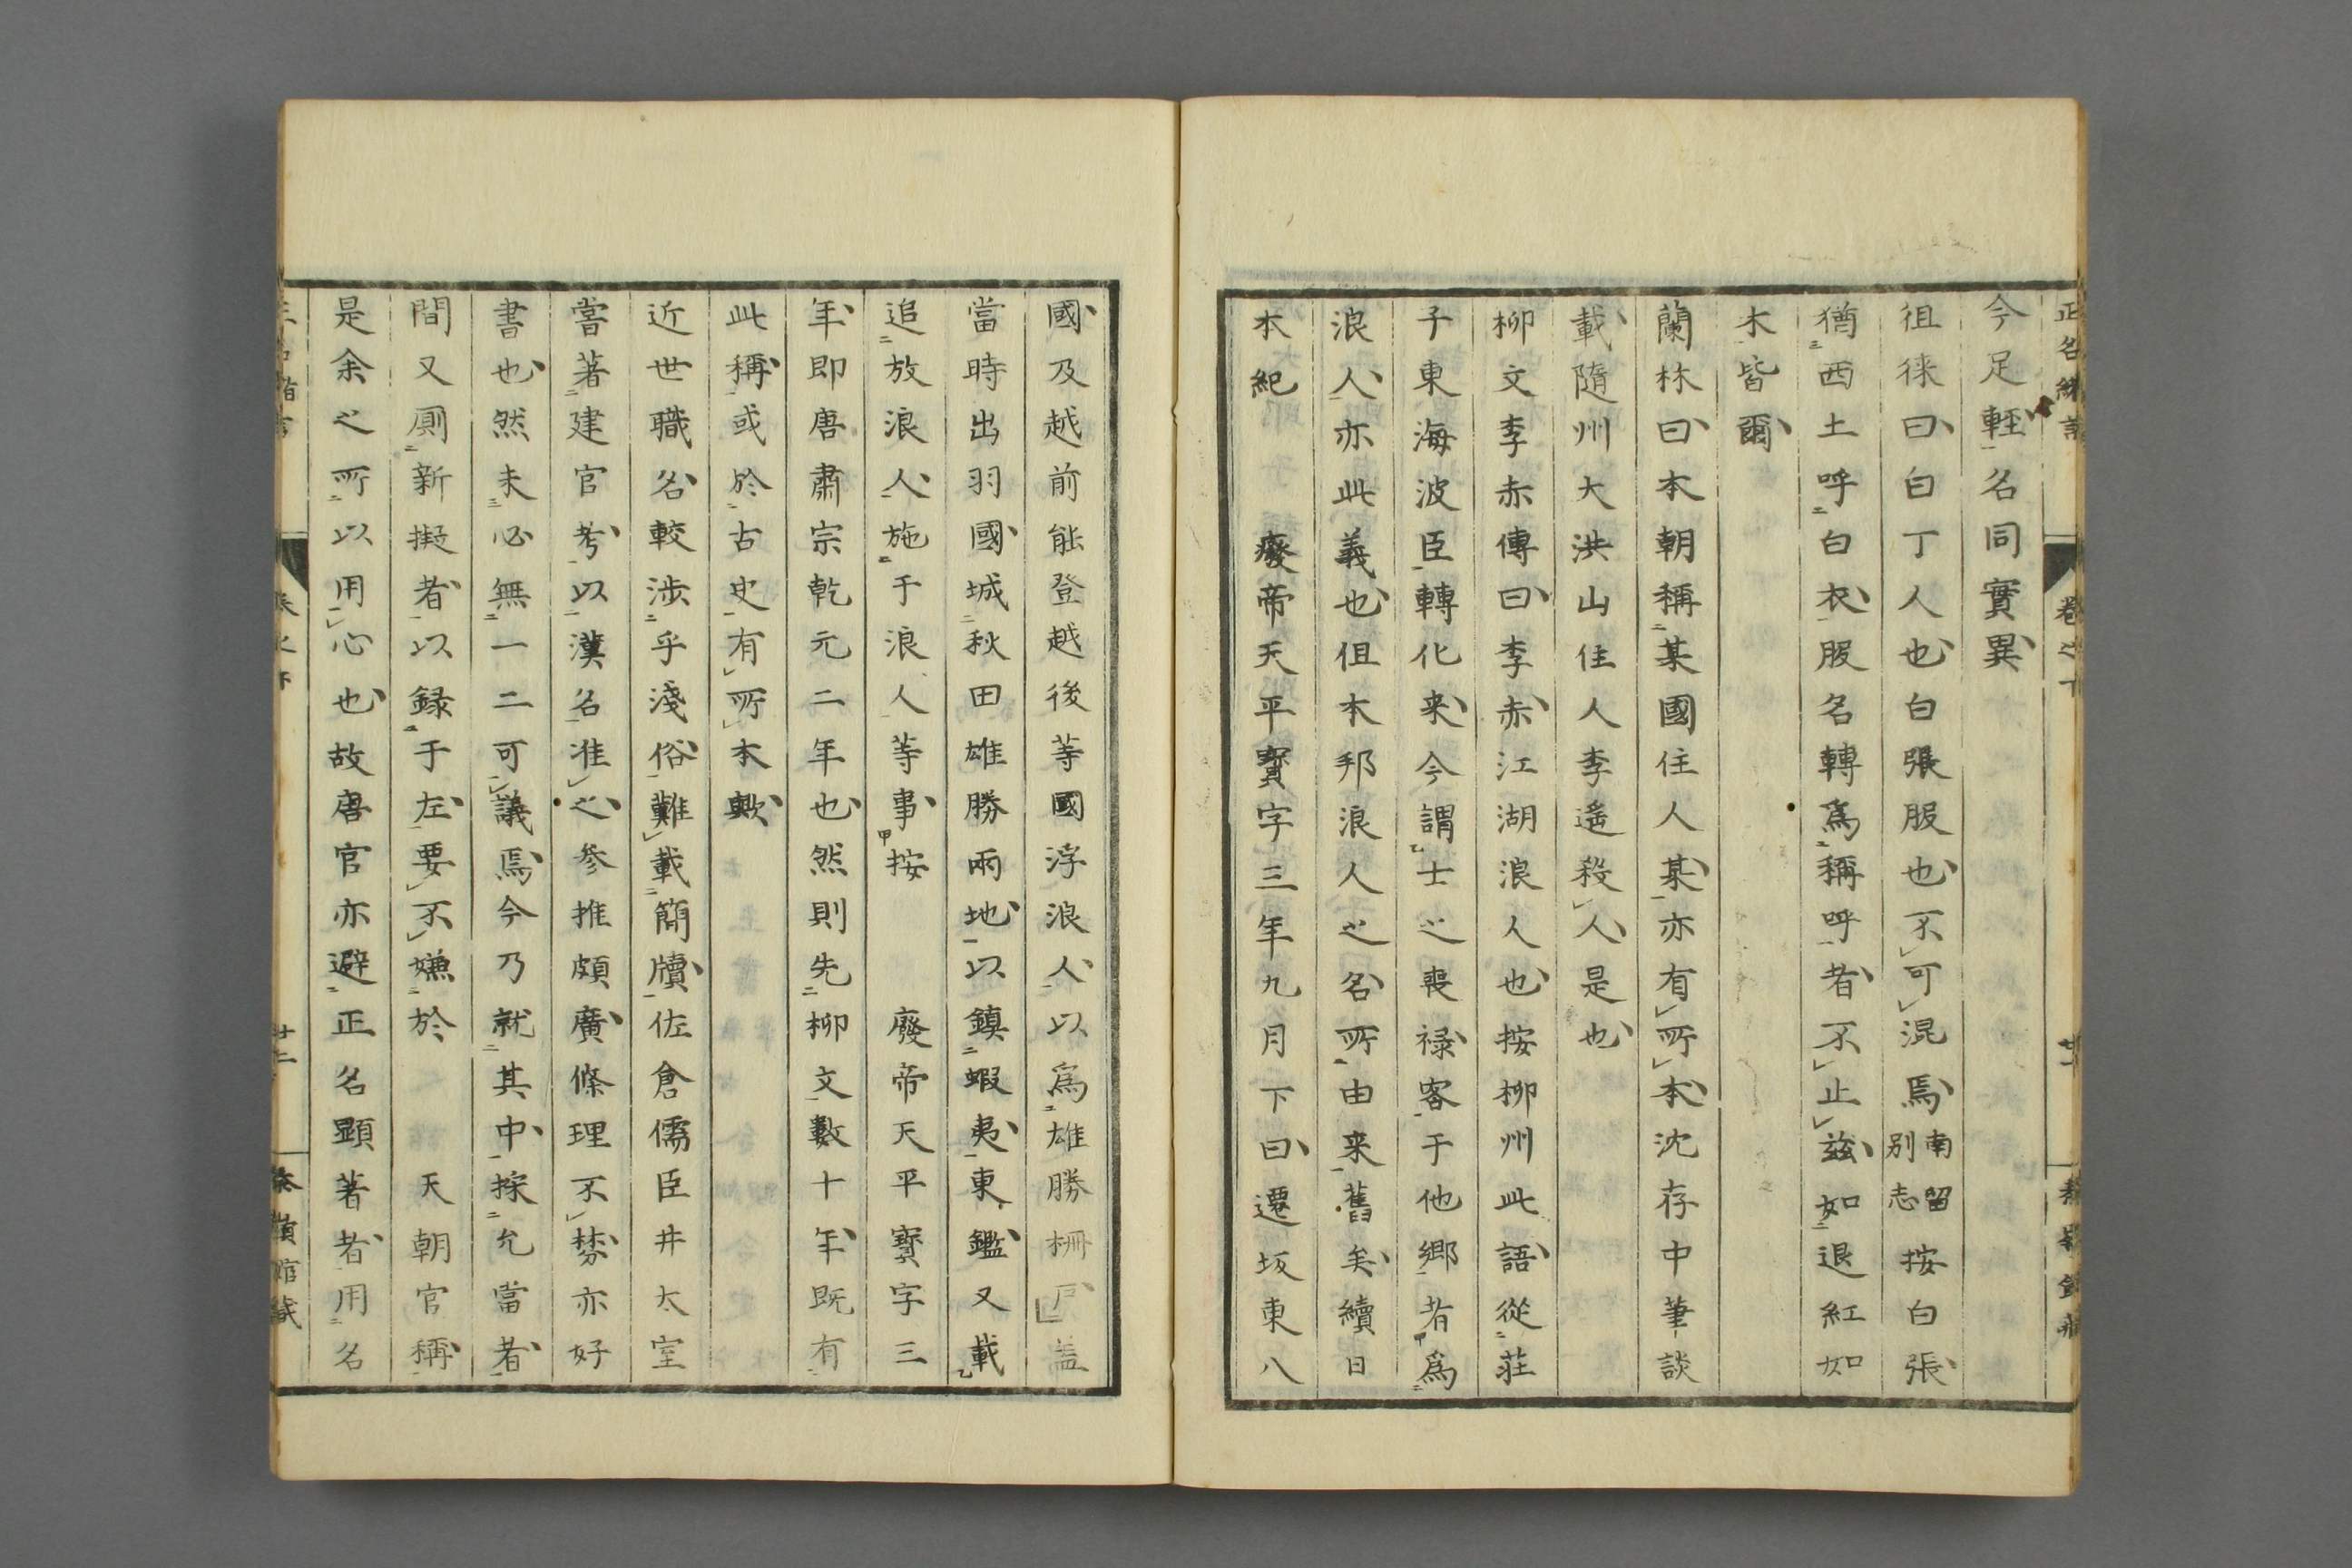 正名緒言
卷之下
今足輕名同實異
徂徠曰白丁人也白張服也不可混焉南留別志按白張
猶西土呼白衣服名轉爲稱呼者不止茲如退紅如
木皆爾
蘭林曰本朝稱某國住人某亦有所本沈存中筆談
載隨州大洪山住人李遥殺人是也
柳文李赤傳曰李赤江湖浪人也按柳州此語從莊
子東海波臣轉化来今謂士之喪禄客于他郷者爲
浪人亦此義也但本邦浪人之名所由来舊矣續日
本紀　廢帝天平寳字三年九月下曰遷坂東八
國及越前能登越後等國浮浪人以爲雄勝柵戸盖
當時出羽國城秋田雄勝兩地以鎮蝦夷東鑑又載
追放浪人施于浪人等事按　廢帝天平寳字三
年即唐肅宗乾元二年也然則先柳文數十年既有
此稱或於古史有所本歟
近世職名較渉乎淺俗難載簡牘佐倉儒臣井太室
嘗著建官考以漢名准之參推頗廣條理不棼亦好
書也然未必無一二可議焉今乃就其中採允當者
間又厠新擬者以録于左要不嫌於　天朝官稱
是余之所以用心也故唐官亦避正名顯著者用名